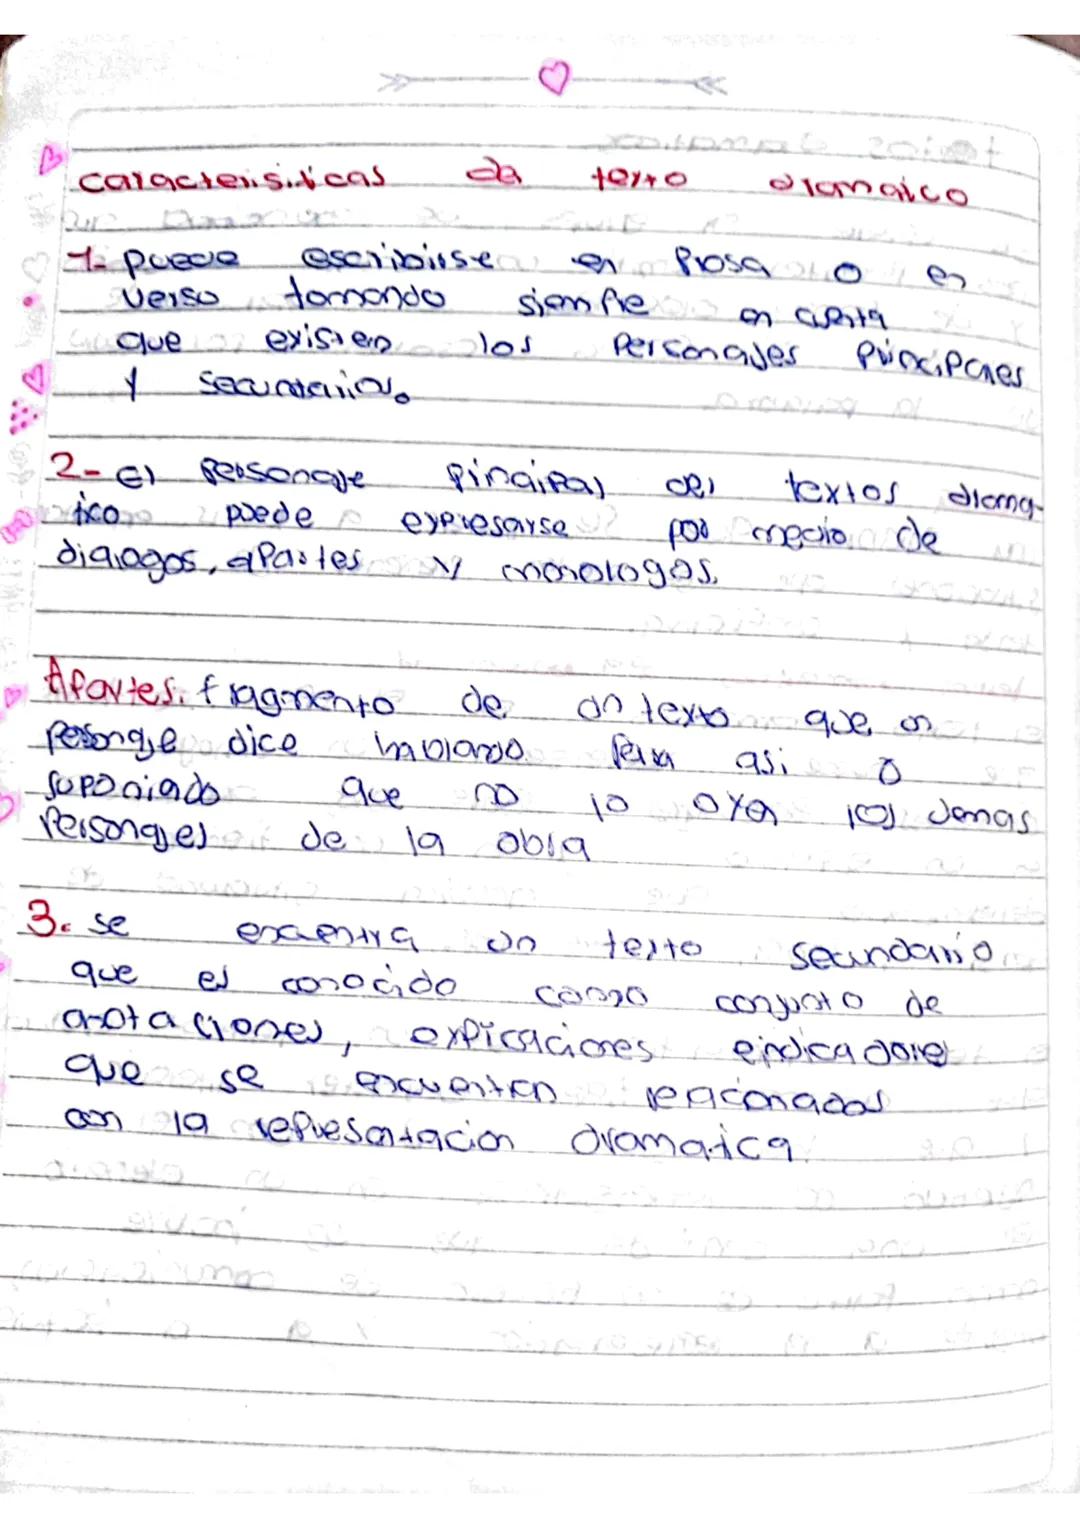 caracterisiticas de texto dramatico
1- puede escribirse en Prosa o en
Verso tomando siempre en cuenta
que existen los Personajes Principales
y Secundarios.
2- El Personaje Principal del textos drama-
tico puede expresarse por medio de
dialogos, aPartes y monologos.
Apartes. fragmento de un texto que un
Personaje dice hablando Para asi o
suponiado que no lo oya los demas
Personajes de la obra
3. se encuentra un texto secundario
que es conocido como conjunto de
anotaciones, explicaciones eindicadores
que se encuentran relacionados
con la representacion dramatica.